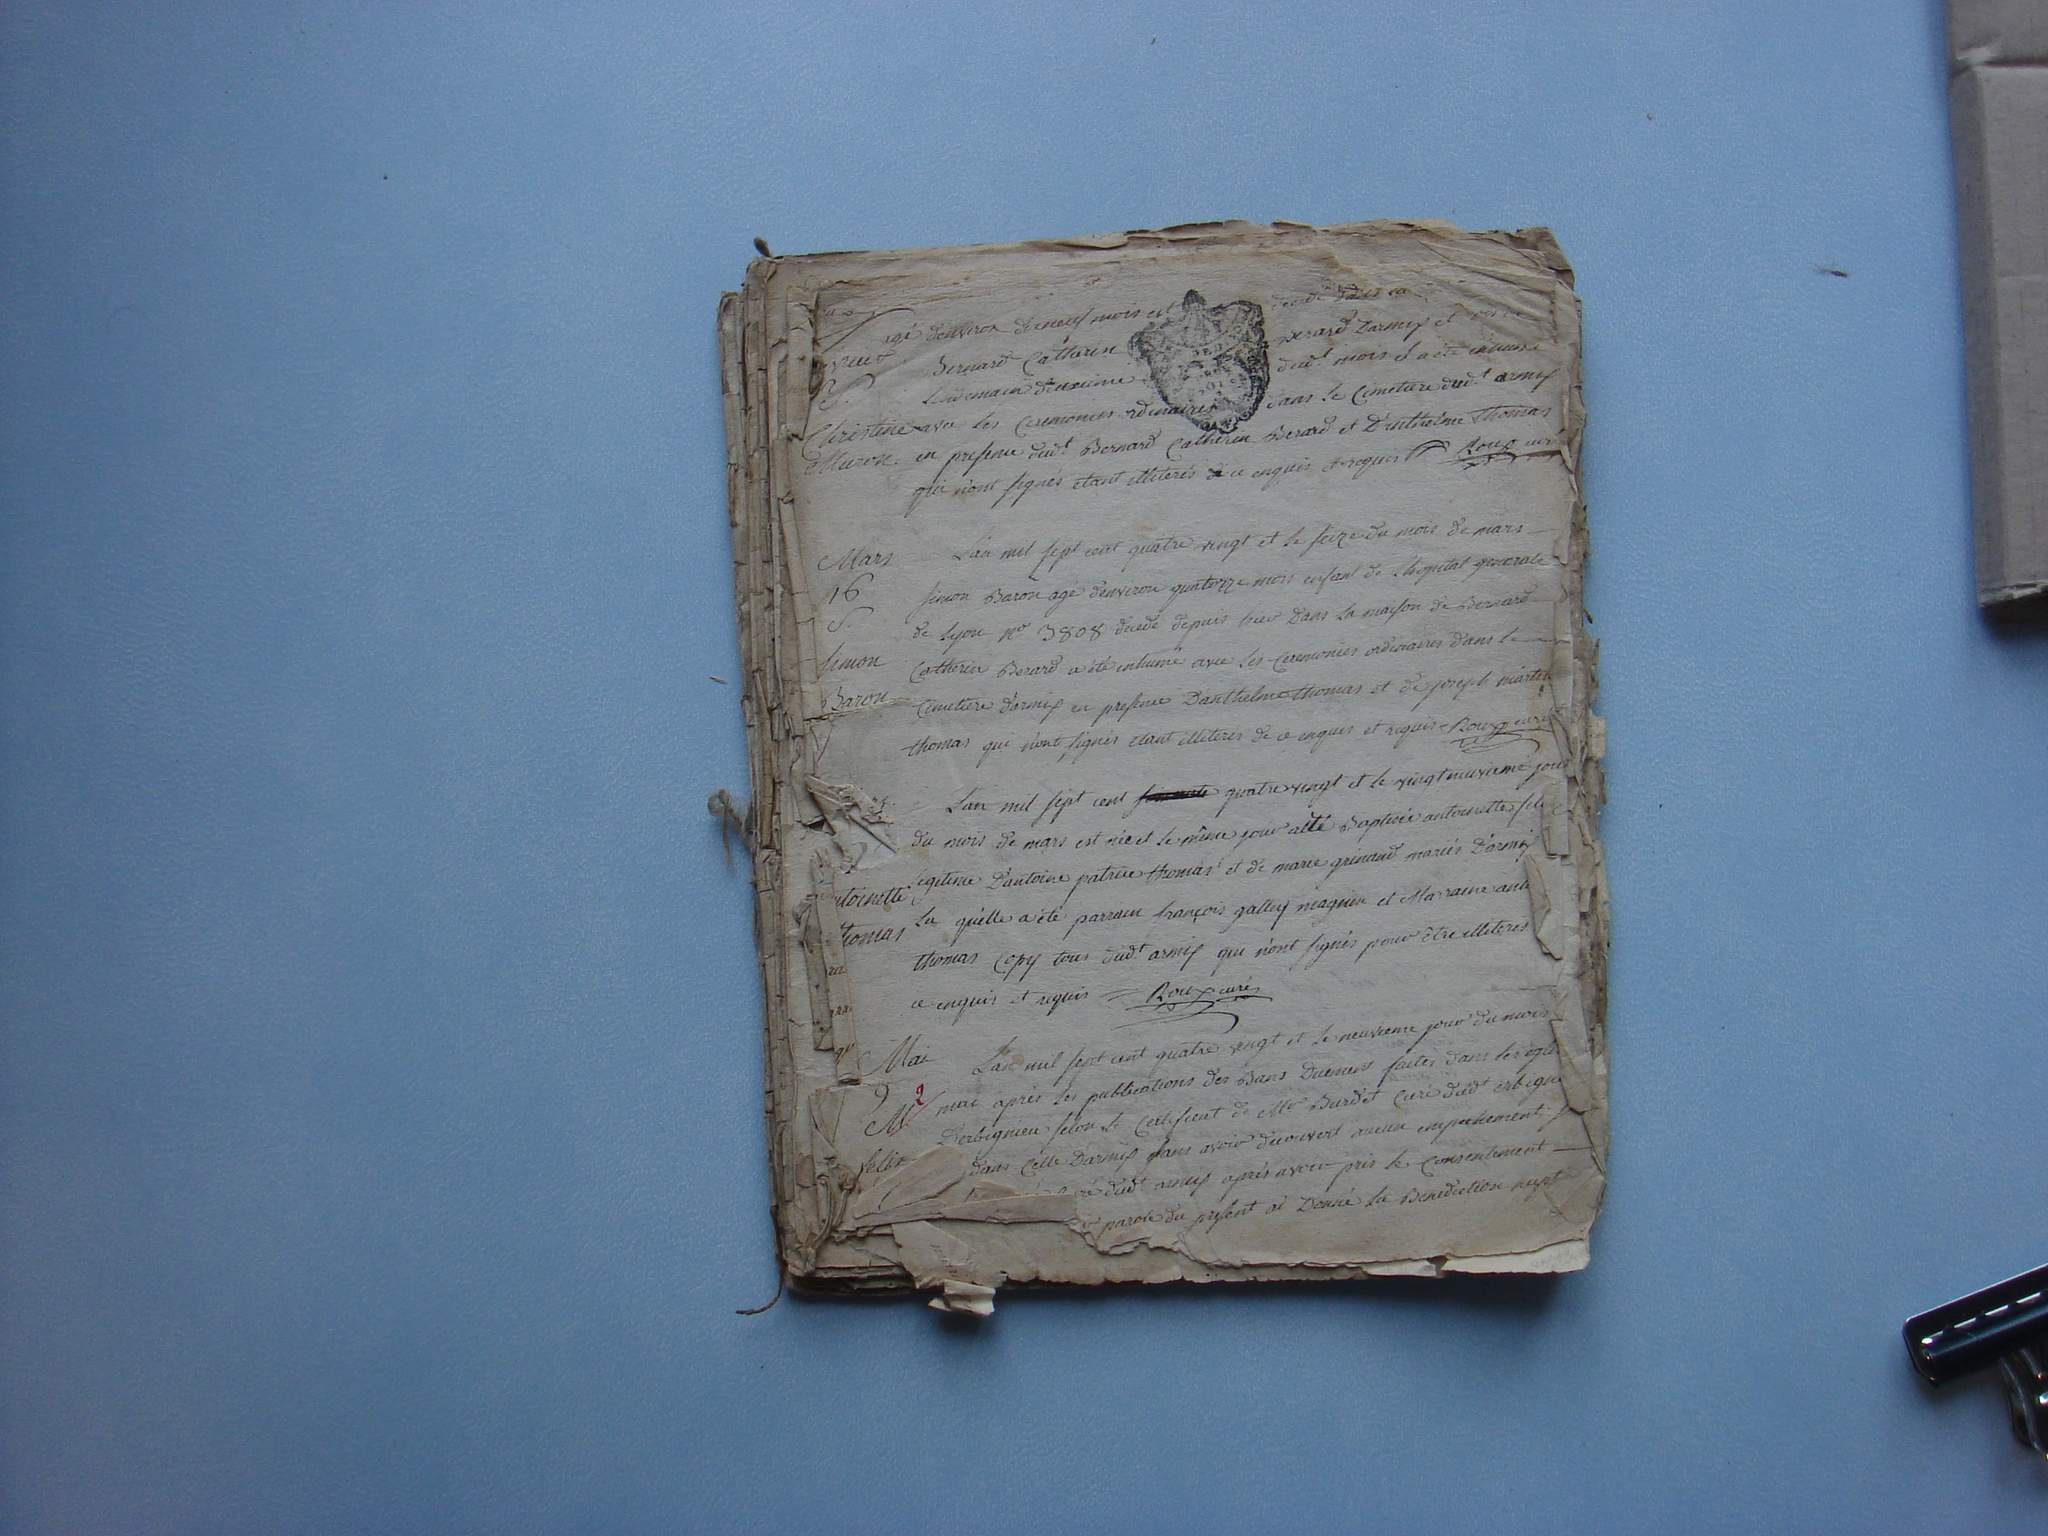 agé d'environ de neuf mois est decedé dans la
Bernard Catherin Berard Darmix et
Lendemain deuxieme dudt mois et a été inhumé
Christine avec les Ceremonies ordinaires dans le Cimetiere dudt armix
Muron. en presence dudt Bernard Catherin Berard et D'anthelme Thomas
qui n'ont signés etant illiterés de ce enquis et requis Roux curé
Mars L'an mil sept cent quatre vingt et le seize du mois de mars
16 simon Baron agé d'environ quatorze mois enfant de l'hopital generale
S. de Lyon no 3808 decedé depuis hier dans la maison de Bernard
simon Catherin Berard a été inhumé avec les Ceremonies ordinaires dans le
Baron Cimetiere d'armix en presence D'anthelme thomas et de joseph martin
thomas qui n'ont signés etant illiteres de ce enquis et requis Roux curé
L'an mil sept cent quatre vingt et le vingtneuvieme jour
du mois de mars est née et le même jour a été Baptisée antoinette fille
legitime D'antoine patrice thomas et de marie grinaud mariés D'armix
antoinette
thomas La quelle a été parrain françois gallay magnin et Marraine
thomas Copy tous dudt armix qui n'ont signés pour être illiterés
ce enquis et requis Roux curé
Mai L'an mil sept cent quatre vingt et le neuvieme jour du mois
9 mai après les publications des Bans Duement faites dans
M 2 D'erbignieu selon le Certificat de Mr Burdet Curé dudt erbigni
felix dans Celle Darmix sans avoir decouvert aucun empechement
curé dudt armix après avoir pris le Consentement
parole du present ai Donné la Benediction